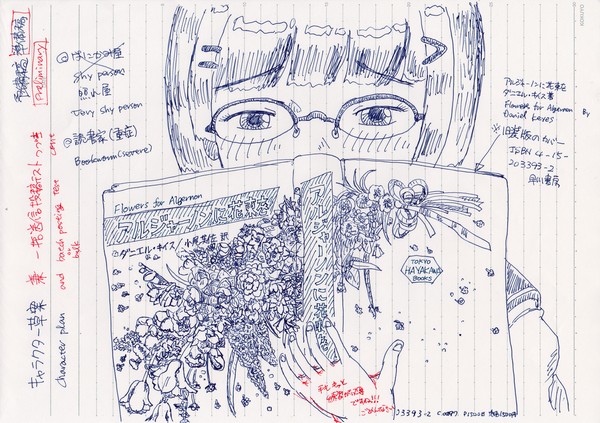 準備稿
Preliminary
キャラクター草案 兼 一括送信投稿テスト
character plan and batch posting test
or bulk
@はにかみ屋
shy person
照れ屋
Very shy person
@読書家(重症)
Bookworm (severe)
アルジャーノンに花束を
ダニエル・キイス著
Flowers for Algernon
By
Daniel Keyes
※旧装版のカバー
ISBN 4-15-
203393-2
早川書房
Flowers for Algernon
アルジャーノンに花束を
ダニエル・キイス
小尾芙佐 訳
アルジャーノンに花束を
TOKYO
HAYAKAWA
BOOKS
ごめんなさい
203393-2